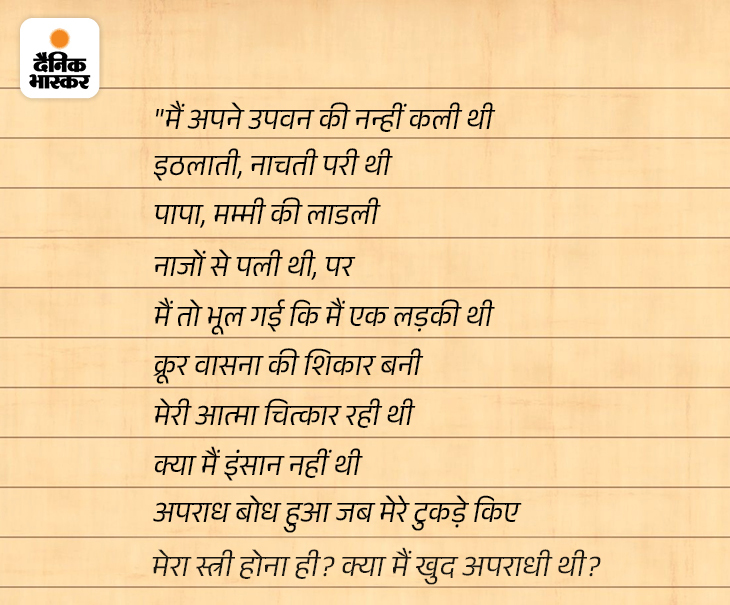 दैनिक
भास्कर
"मैं अपने उपवन की नन्हीं कली थी
इठलाती, नाचती परी थी
पापा, मम्मी की लाडली
नाजों से पली थी, पर
मैं तो भूल गई कि मैं एक लड़की थी
क्रूर वासना की शिकार बनी
मेरी आत्मा चित्कार रही थी
क्या मैं इंसान नहीं थी
अपराध बोध हुआ जब मेरे टुकड़े किए
मेरा स्त्री होना ही? क्या मैं खुद अपराधी थी?